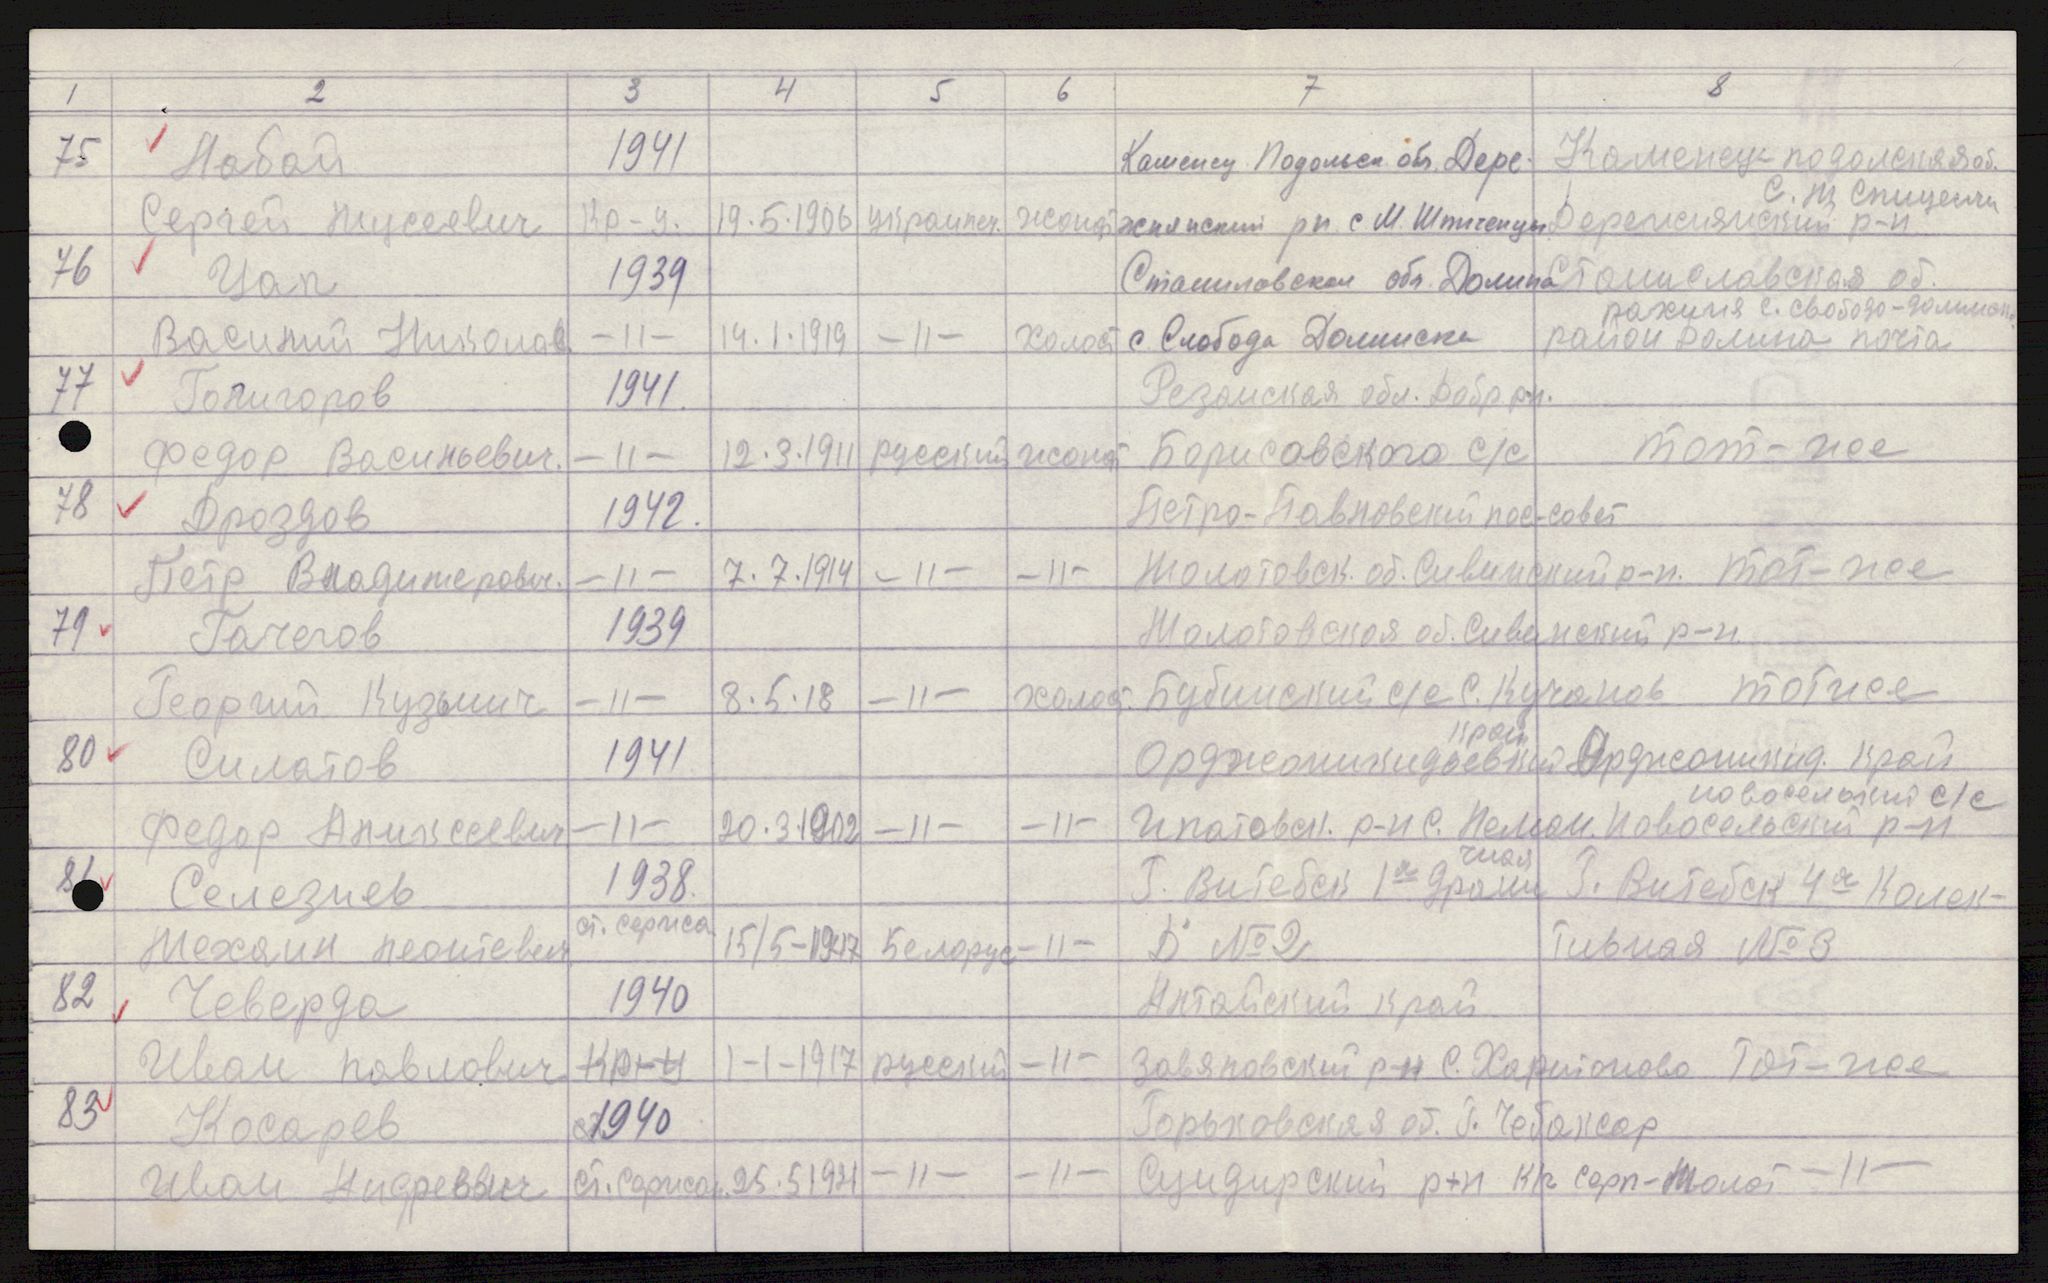 1 2 3 4 5 6 7 8
75 Набой 1941 Каменец Подольск обл. Дере- Каменец-подолская об.
С. Щ Спиценци
Сергей Мусеевич Кр-ц. 19.5.1906 украинец. жонат жнянский рн с М. Штиченцы Дережнянский р-н
76 Цап 1939 Станиловская обл. Долина Станиславская об.
рахиня с. свободо-далинска
Василий Николаев -11- 14.1.1919 -11- холост с. Слобода Долинска район Долина почта
77 Голигоров 1941. Резанская обл. Добр рн.
Федор Васильевич. -11- 12.3.1911 русский жонат Борисовского с/с тот-же
78 Дроздов 1942. Петро-Павловский пос-совет
Петр Владимерович. -11- 7.7.1914 -11- -11- Молотовск. об. Сивинский р-н. тот-же
79 Гачегов 1939 Молотовская об. Сивинский р-н.
Георгий Кузьмич -11- 8.5.18 -11- холост. Бубинский с/с С. Кучанов тотже
край
80 Силатов 1941 Орджоникидзевский Орджоникид. край
новоселький с/с
Федор Аликсеевич -11- 20.3.1902 -11- -11- Ипатовск. р-н С. Новосельский р-н
чная
81 Селезнев 1938. Г. Витебск 1я Г. Витебск 4я Колек-
Мехаил Леонтевич ст. сержса 15/5-1917 Белорус -11- Д № 2 тивная № 3
82 Чеверда 1940 Алтайский край
Иван Павлович Кр-ц 1-1-1917 русский -11- Завяловский р-н С. Харитоново Тот-же
83 Косарев 1940 Горьковская об. Г. Чебаксар
Иван Андреевич ст. сержсан. 25.5.1921 -11- -11- Сундирский р-н К/з серп-Молот -11-